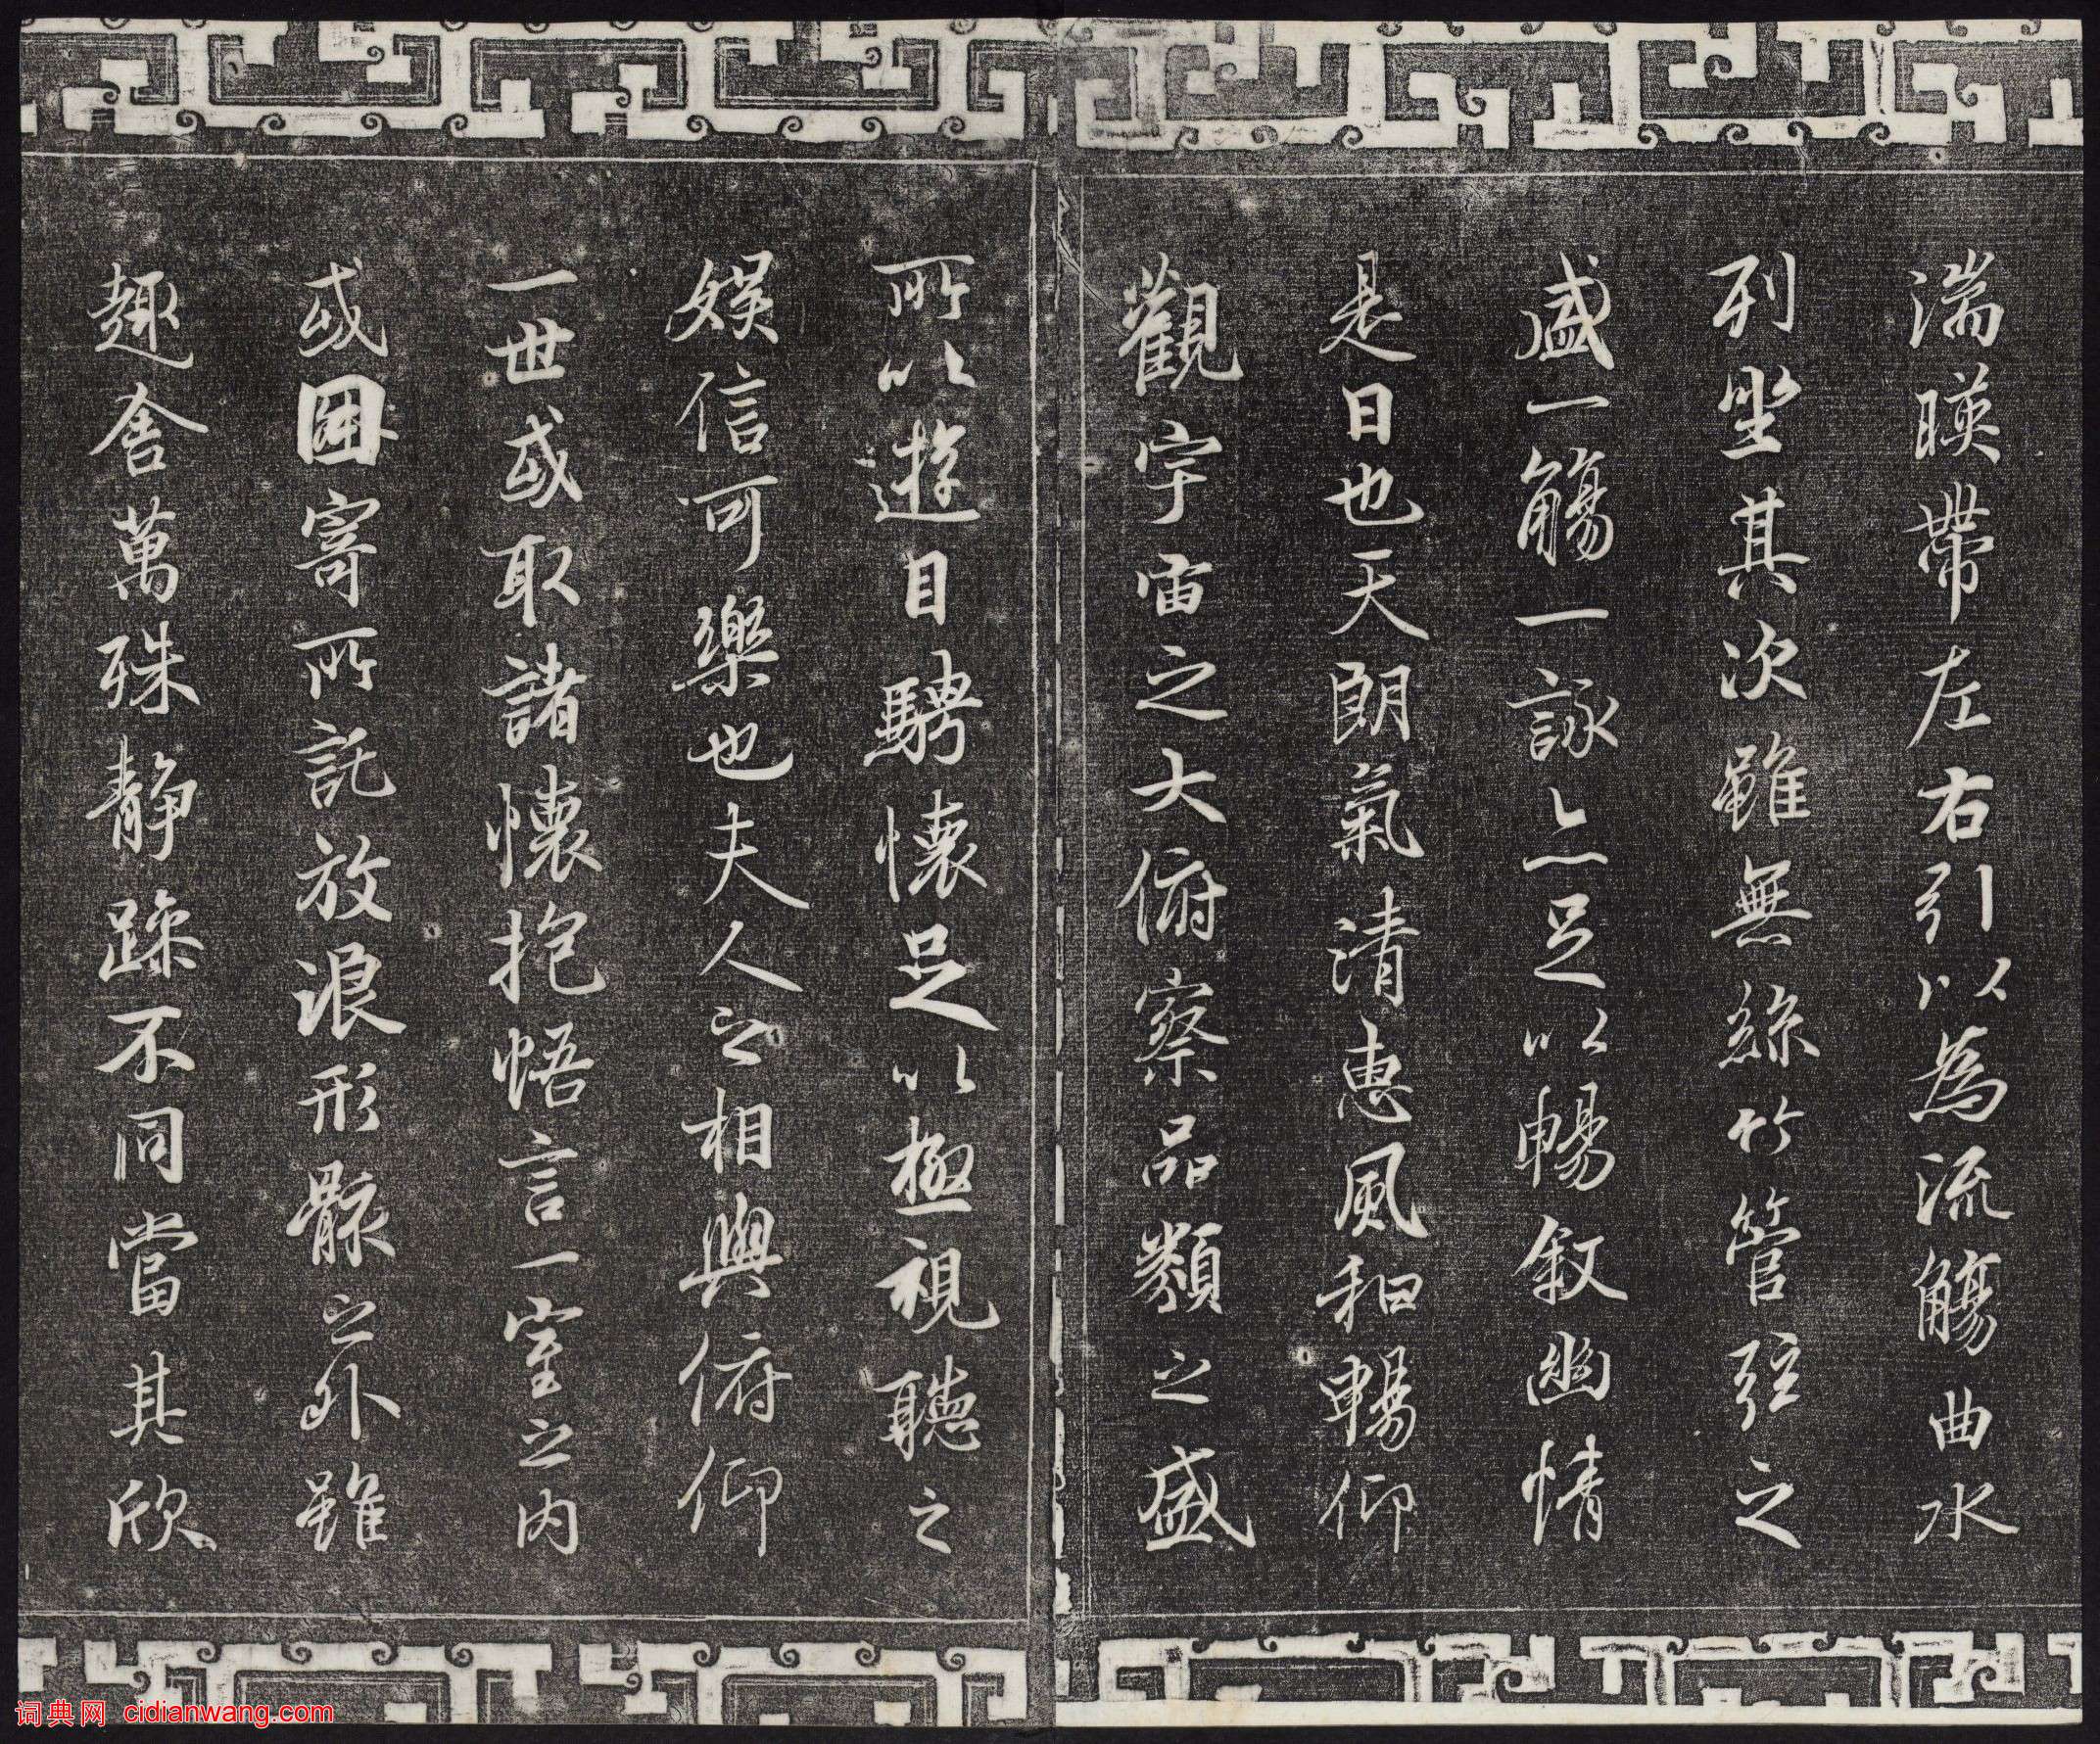 湍暎帶左右引以為流觴曲水
列坐其次雖無絲竹管弦之
盛一觴一詠亦足以暢敘幽情
是日也天朗氣清惠風和暢仰
觀宇宙之大俯察品類之盛
所以遊目騁懷足以極視聽之
娛信可樂也夫人之相與俯仰
一世或取諸懷抱悟言一室之內
或因寄所託放浪形骸之外雖
趣舍萬殊靜躁不同當其欣
词典网 cidianwang.com